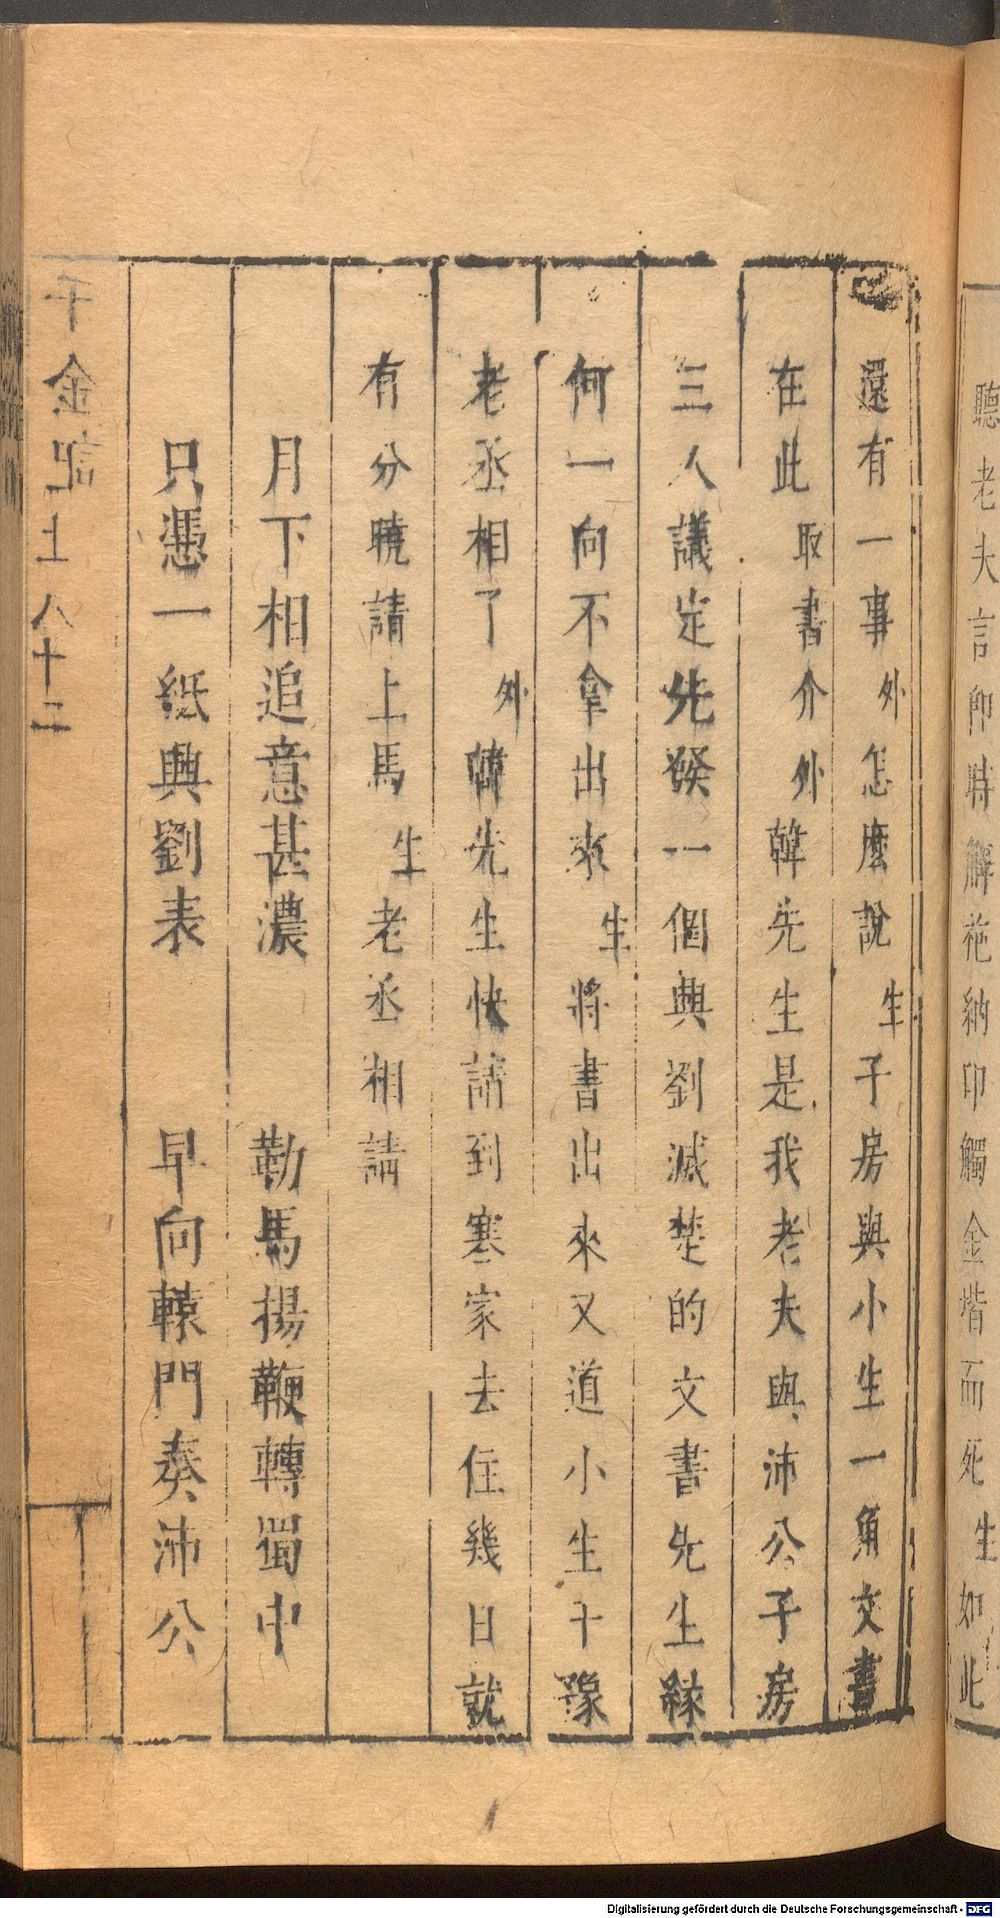 聽老夫言卽時解袍納印觸金堦而死生如此
還有一事外怎麽說生子房與小生一角文書
在此取書介外韓先生是我老夫與沛公子房
三人議定先發一個興劉滅楚的文書先生緣
何一向不拿出來生將書出來又道小生干瀆
老丞相了外韓先生快請到寒家去住幾日就
有分曉請上馬生老丞相請
月下相追意甚濃 勒馬揚鞭轉蜀中
只憑一紙興劉表 早向轅門奏沛公
千金記上 八十二
Digitalisierung gefördert durch die Deutsche Forschungsgemeinschaft - DFG